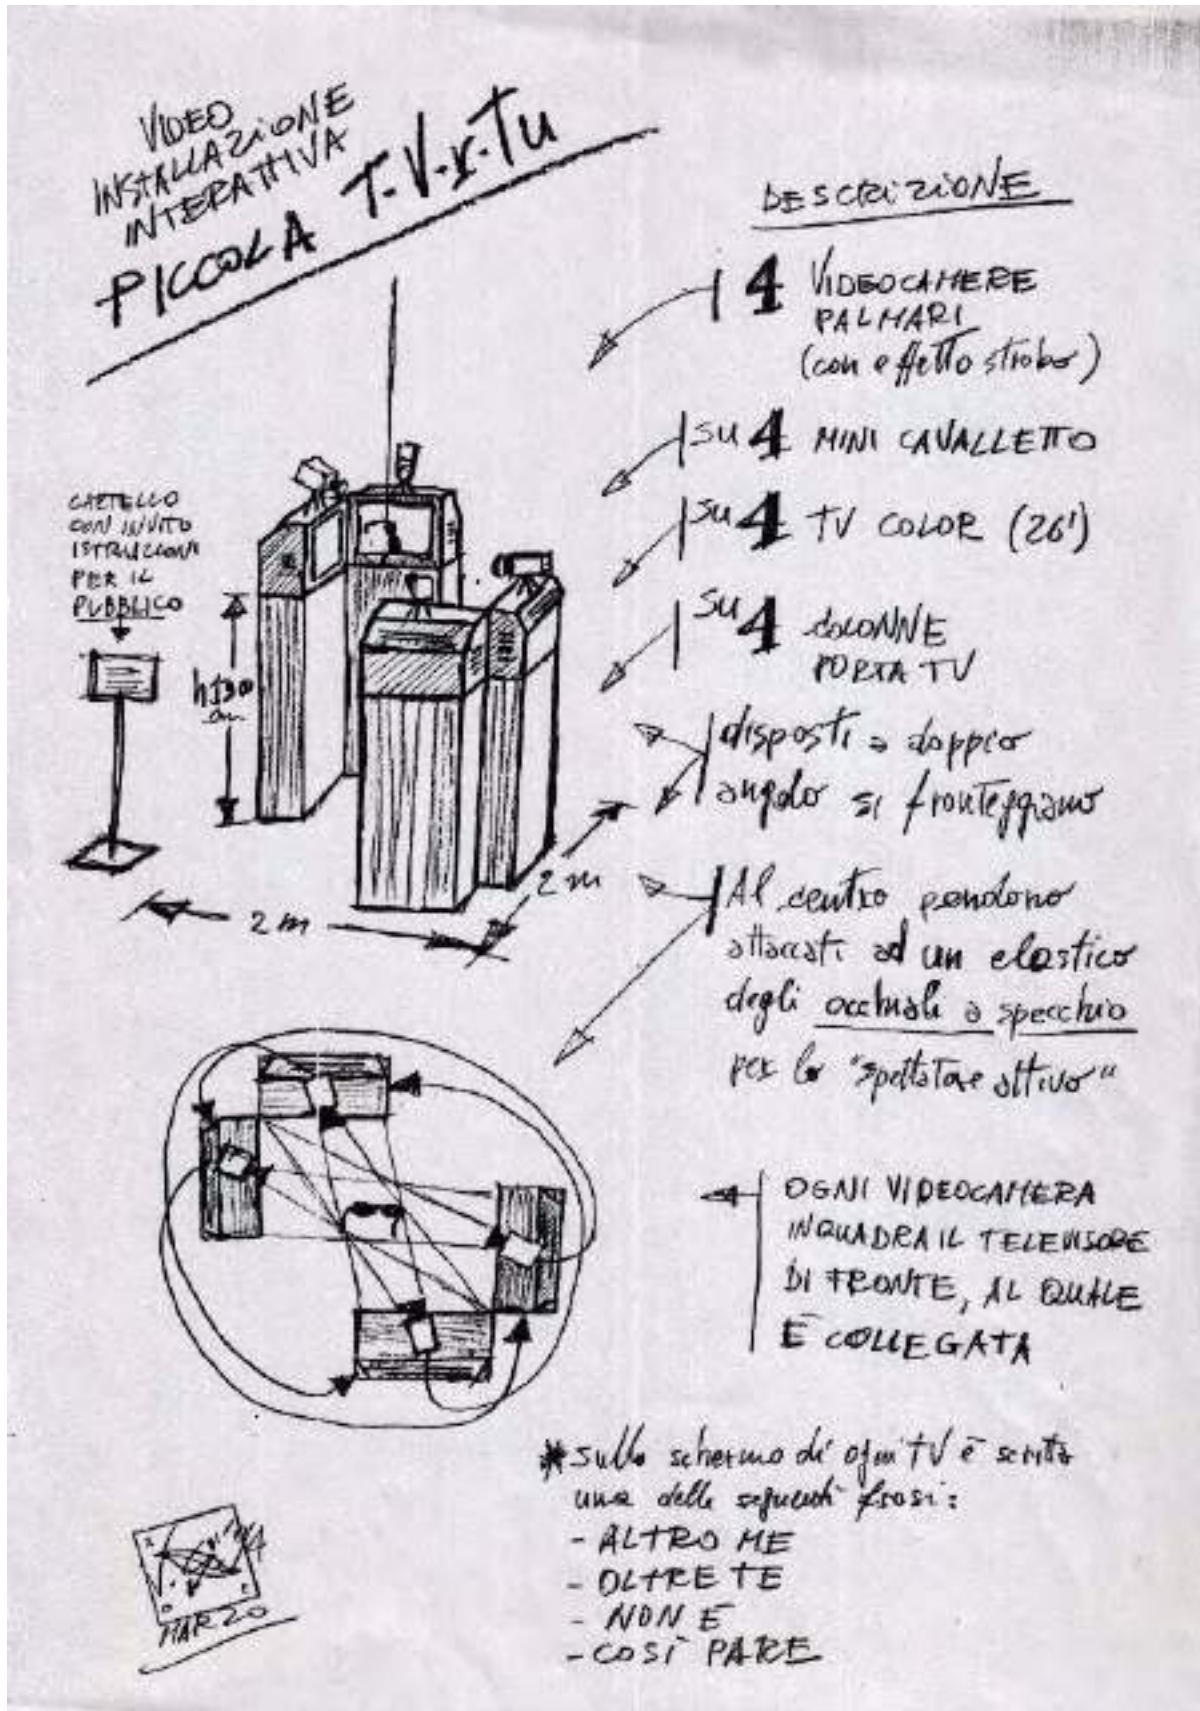 VIDEO
INSTALLAZIONE
INTERATTIVA
PICCOLA T-V-r-Tu
DESCRIZIONE
4 VIDEOCAMERE
PALMARI
(con effetto strobo)
su 4 MINI CAVALLETTO
su 4 TV COLOR (26')
su 4 COLONNE
PORTA TV
disposti a doppio
angolo si fronteggiano
Al centro pendono
attaccati ad un elastico
degli occhiali a specchio
per lo "spettatore attivo"
OGNI VIDEOCAMERA
INQUADRA IL TELEVISORE
DI FRONTE, AL QUALE
È COLLEGATA
* sullo schermo di ogni TV è scritta
una delle seguenti frasi:
- ALTRO ME
- OLTRE TE
- NON È
- COSÌ PARE
CARTELLO
CON INVITO
ISTRUZIONI
PER IL
PUBBLICO
h 130
cm
2 m
2 m
MARZO